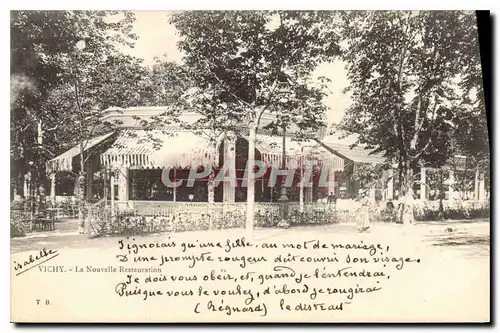 CPARAMA
isabelle
VICHY. - La Nouvelle Restauration
J'ignorais qu'une fille, au mot de mariage,
D'une prompte rougeur dût couvrir son visage.
Je dois vous obéir, et, quand je l'entendrai,
Puisque vous le voulez, d'abord je rougirai
(Régnard) le distrait
T B